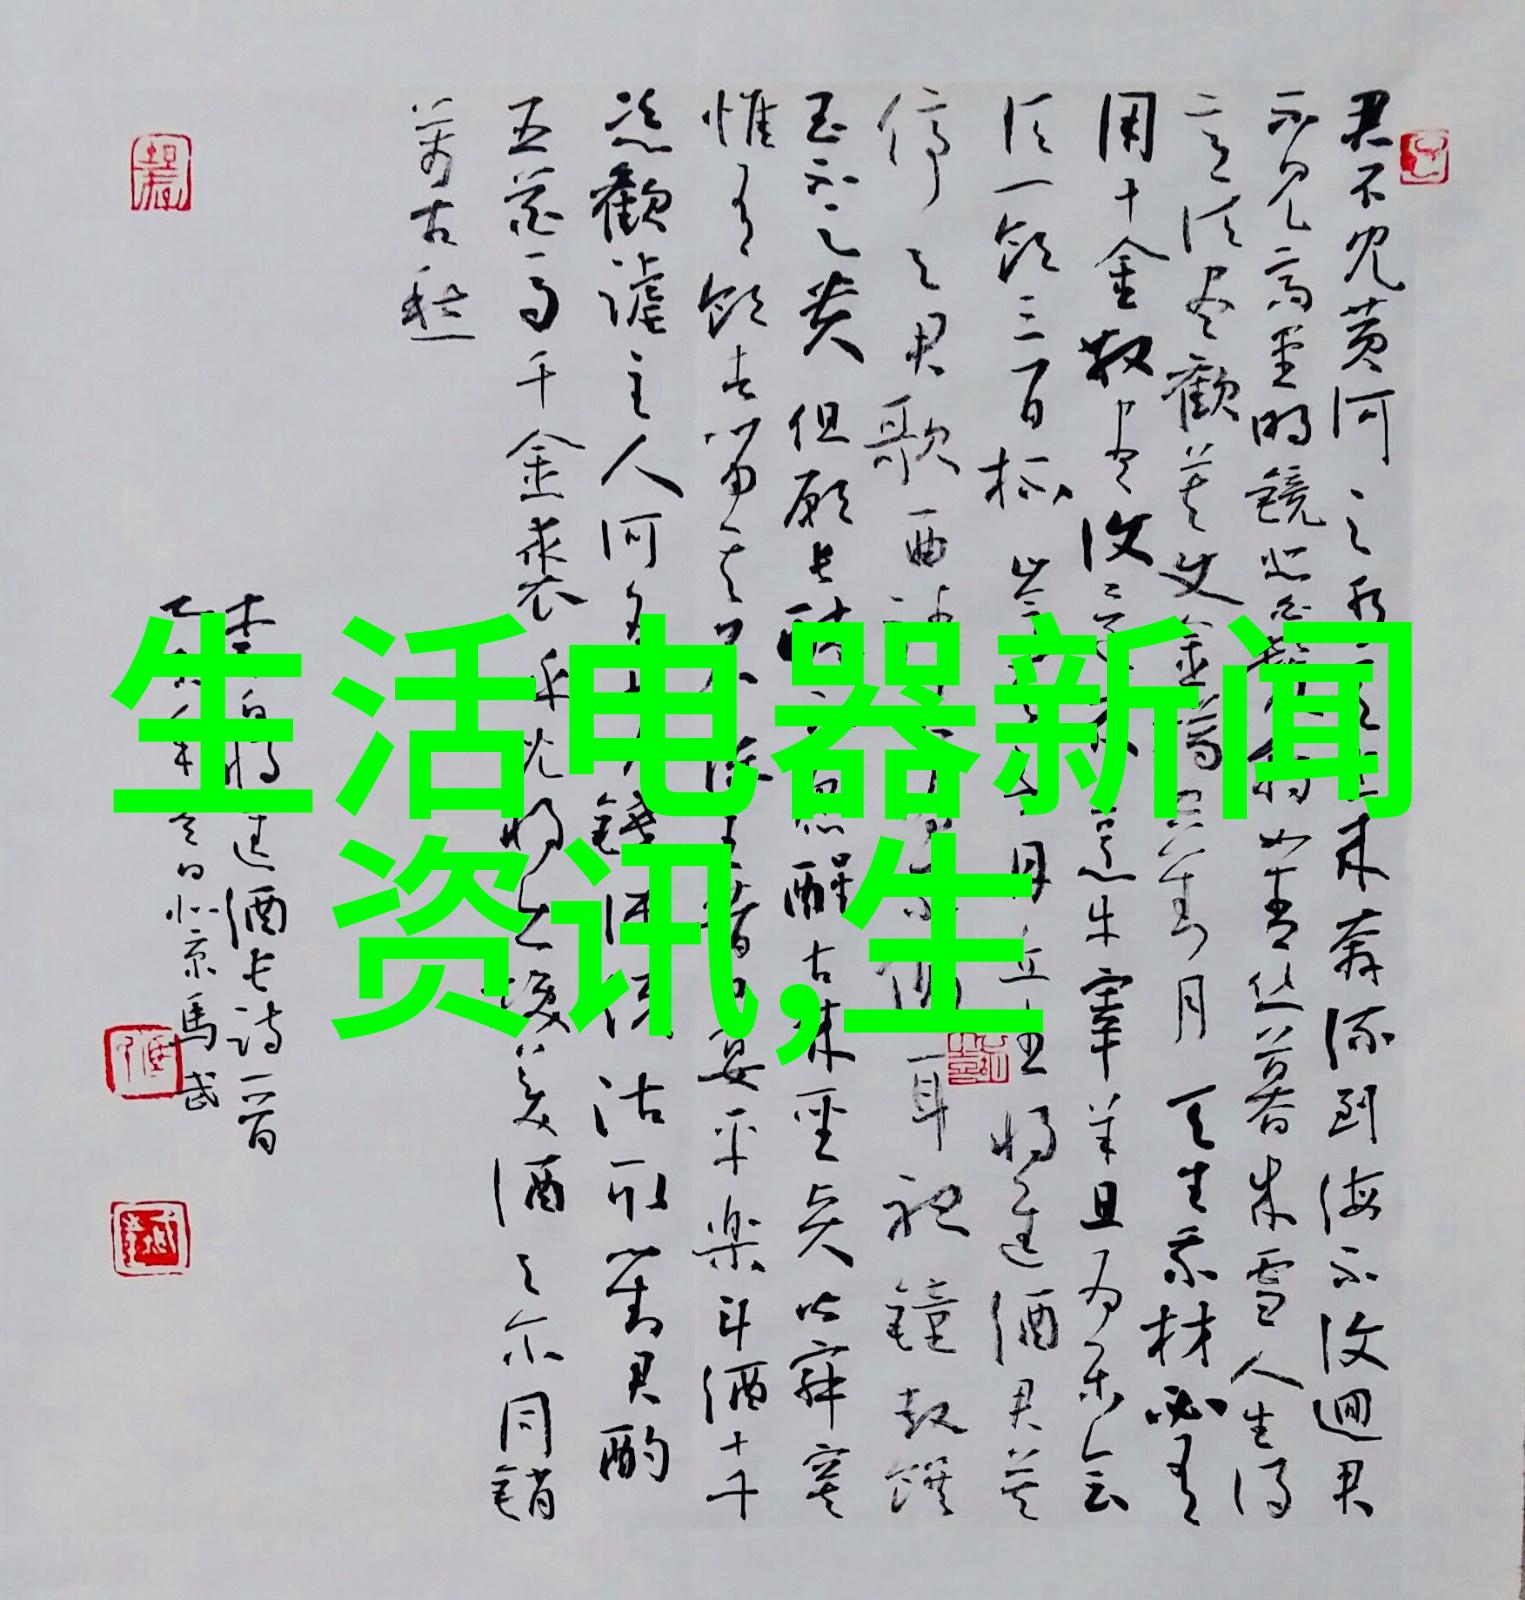 君不见黄河之水天上来奔流到海不復迴君
不见高堂明镜悲白髮朝如青丝暮成雪人生得
意须尽歡莫使金樽空对月天生我材必有
用千金散尽復还来烹牛宰羊且为乐会
须一飲三百杯岑夫子丹丘生将進酒君莫
停与君歌一曲请君为我倾耳聽鐘鼓馔
玉不足贵但願长醉不願醒古来圣贤皆寂寞
惟有飲者留其名陈王昔日宴平楽斗酒十千
恣歡謔主人何为言少錢径须沽取对君酌
五花马千金裘呼児将出換美酒与尔同銷
萬古愁
李白将進酒长詩一首
年冬日北京馬武
生活电器新闻
资讯,生